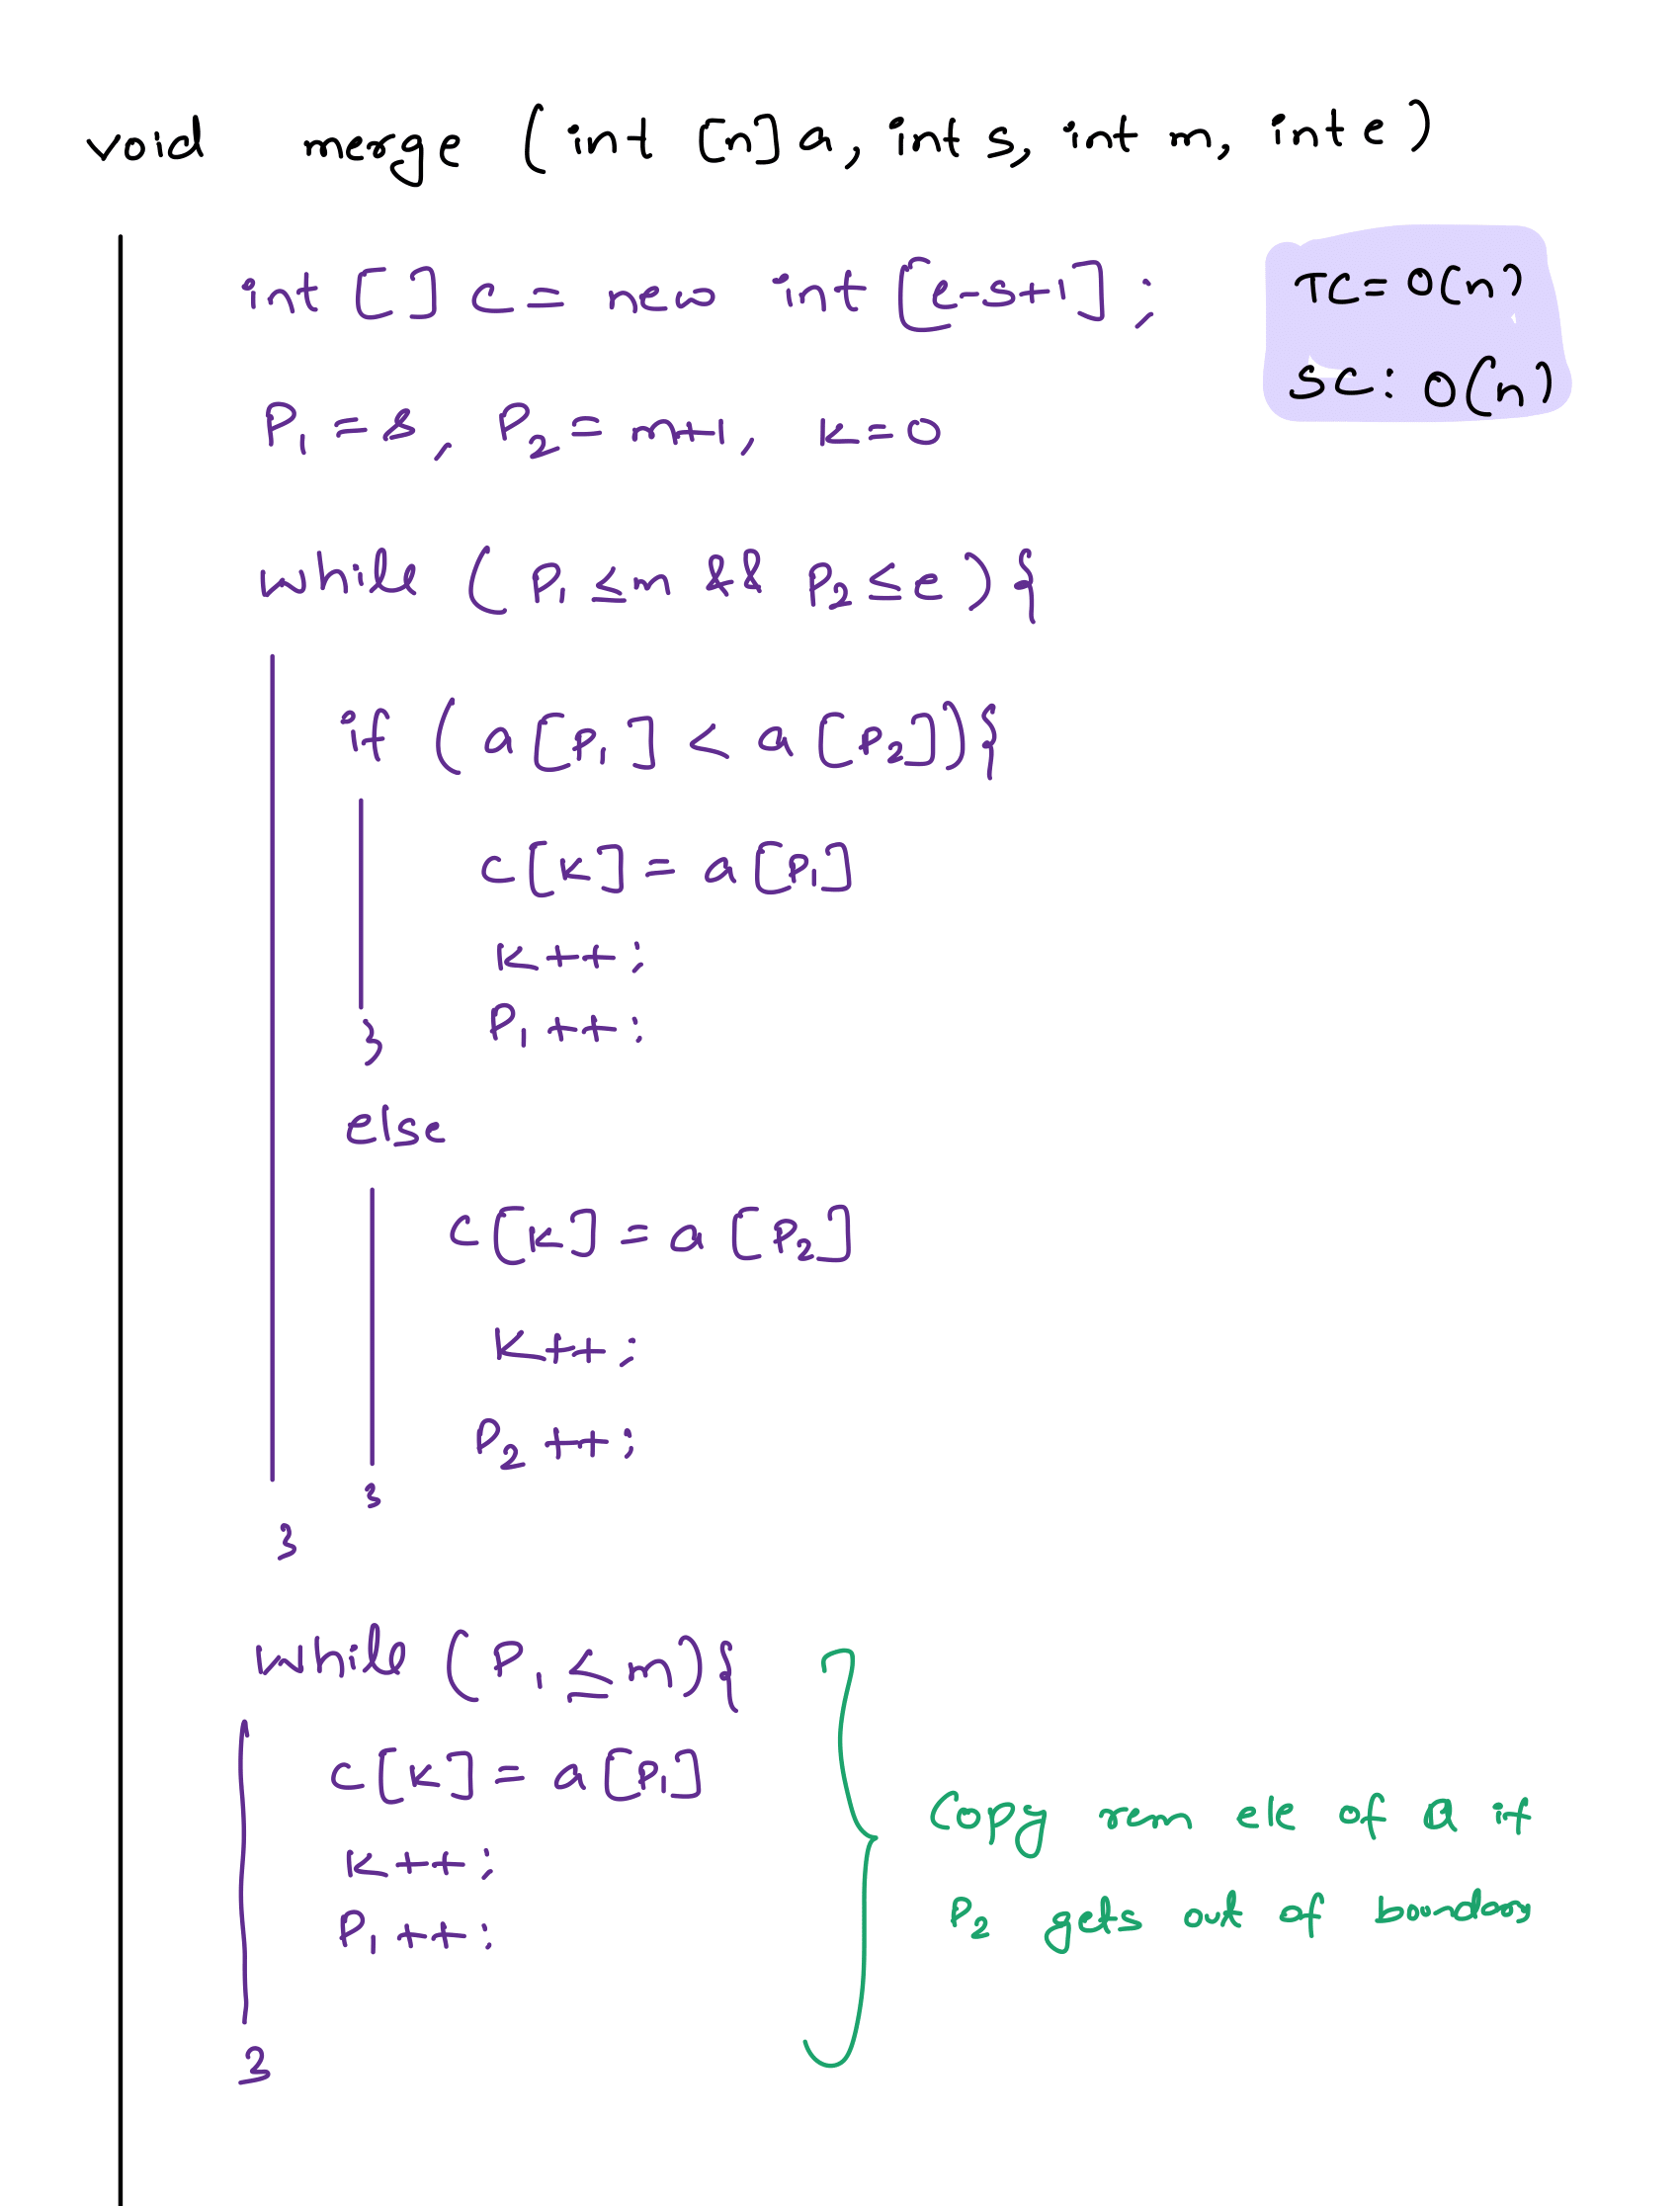 void merge (int [n] a, int s, int m, int e)
int [ ] c = new int [e-s+1];
TC = O(n)
SC: O(n)
P1 = s, P2 = m+1, k=0
while (P1 ≤ m && P2 ≤ e) {
if (a[P1] < a[P2]) {
c[k] = a[P1]
k++;
P1++;
}
else
c[k] = a[P2]
k++;
P2++;
}
}
while (P1 ≤ m) {
c[k] = a[P1]
k++;
P1++;
}
Copy rem ele of a if
P2 gets out of boundary